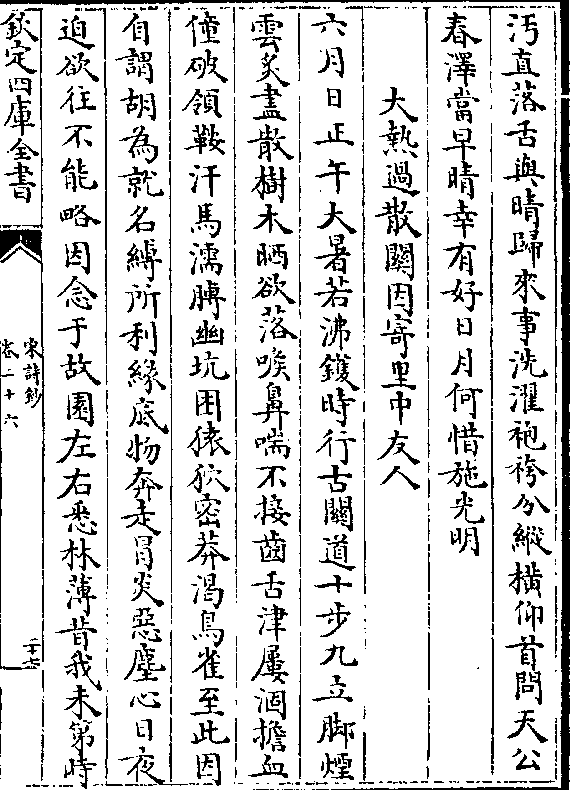 汚直落舌與晴歸來事洗濯袍袴分縱橫仰首問天公
春澤當早晴幸有好日月何惜施光明
大熱過散關因寄里中友人
六月日正午大暑若沸鑊時行古關道十步九立脚煙
雲炙盡散樹木晒欲落喉鼻喘不接齒舌津屢涸擔血
僮破領鞍汗馬濡膊幽坑困猿狖密莽渴鳥雀至此因
自謂胡為就名縛所利緣底物奔走冒炎惡塵心日夜
迫欲往不能略因念于故園左右悉林薄昔我未第時
欽定四庫全書
宋詩鈔
卷二十六
二十七